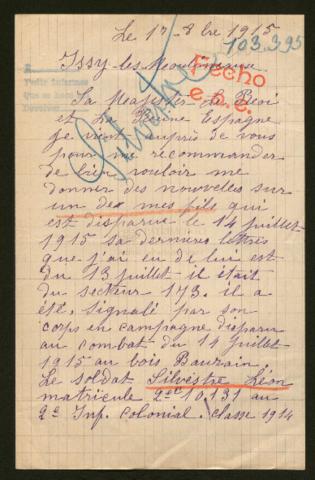 Le 17-8bre 1915
103.395
Issy-les-Moulineaux
Fecho
e. b. c.
Pide Informes
Silvestre
Sa Majester Le Roi
et La Reine Espagne
je vient auprès de vous
pour me recommander
de bien vouloir me
donner des nouvelles sur
un dex mes fils qui
est disparue le 14 juillet
1915 sa dernière lettres
que j'ai eu de lui est
du 13 juillet il était
du secteur 173. il a
été signalé par son
corps en campagne disparu
au combat du 14 juillet
1915 au bois Baurain
Le soldat Silvestre Léon
matricule 10,131 au
2e Inf. Colonial. Classe 1914